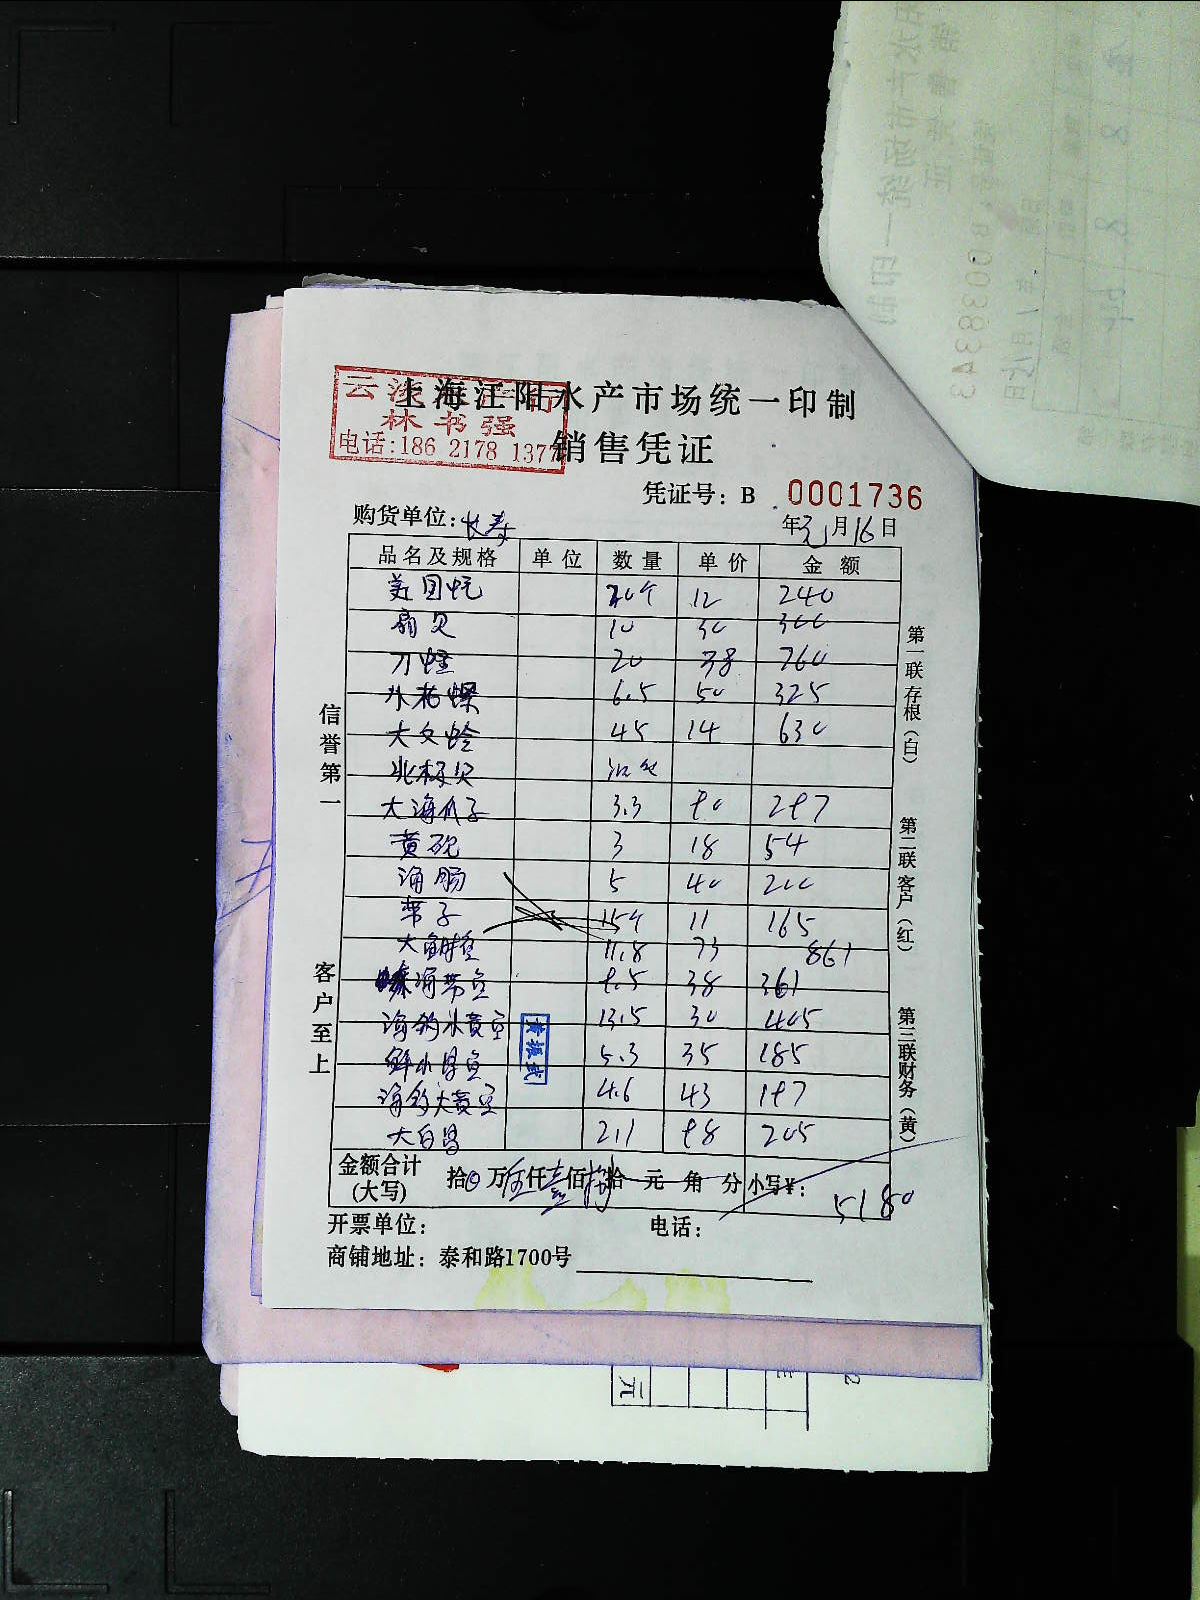 上海江阳水产市场统一印制
林书强
电话:186 2178 1377
销售凭证
凭证号: B 0001736
购货单位: 长寿 年 元 月 16 日
品名及规格 单位 数量 单价 金额
美国蚝 20个 12 240
扇贝 10 30 300
刀蛏 20 38 760
小花螺 6.5 50 325
大文蛤 45 14 630
北极贝
大海瓜子 3.3 90 297
黄蚬 3 18 54
海肠 5 40 200
带子 15个 11 165
11.8 73 861
海带鱼 9.5 38 361
海钓小黄鱼 13.5 30 405
鲜小昌鱼 5.3 35 185
海钓大黄鱼 4.6 43 197
大白昌 2.1 98 205
金额合计
(大写) 拾 万 伍 仟 壹 佰 捌 拾 元 角 分 小写¥: 5180
开票单位: 电话:
商铺地址: 泰和路1700号
信誉第一
客户至上
第一联 存根(白)
第二联 客户(红)
第三联 财务(黄)